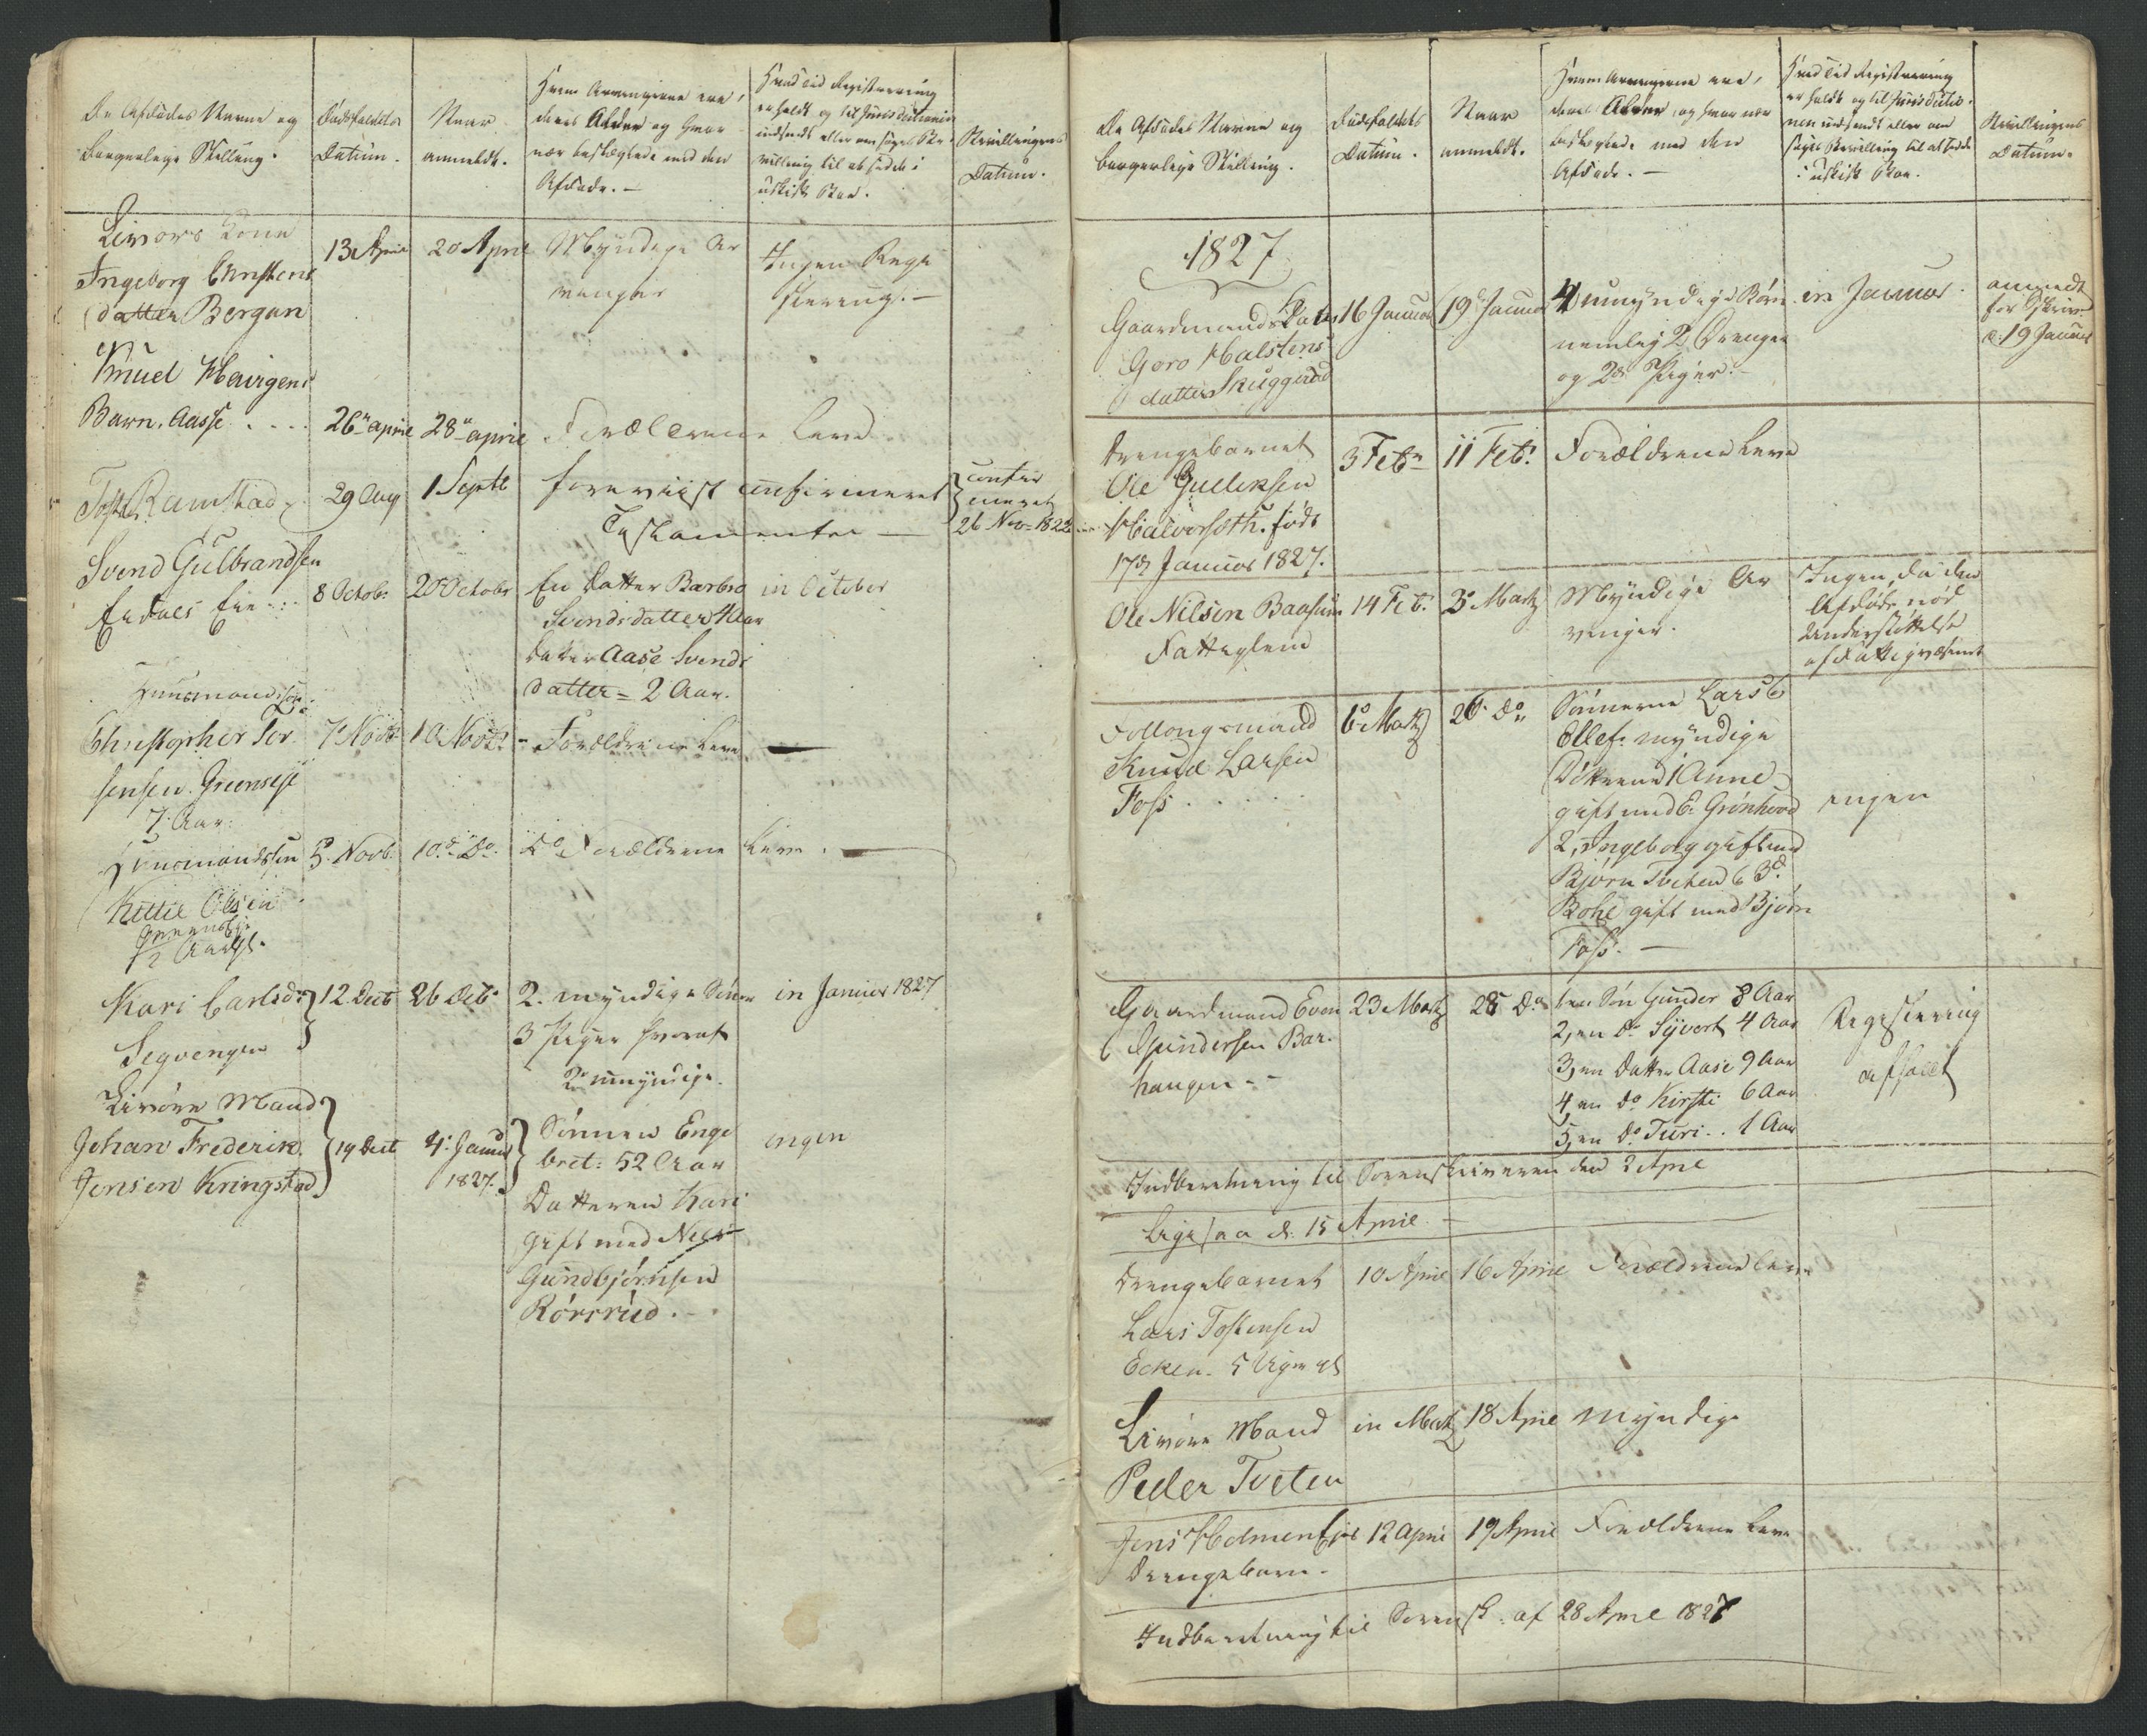 De Afdødes Navne og
borgerlige Stilling.
Dødsfaldets
Datum.
Naar
anmeldt.
Hvem Arvingerne ere,
deres Alder og hvor
nær beslægtede med den
Afdøde. —
Hvad tid Registrering
er holdt og til Jurisdictionen
indsendt eller om søgt Be-
villing til at sidde i
uskift Boe.
Bevillingens
Datum.
Ingeborg Christens
datter Bergan
13 April
20 April
Myndige Ar
vinger
Ingen Regi
strering. —
Knud
Barn. Aasse . . . .
26 april
28 april
Forældrene leve
Ramstad
29 Aug
1 Septb
foreviist confirmeret
Testamente —
confir
meret
26 Nov 1822
Svend Gulbrandsen
8 Octob:
20 Octobr
En datter Barbro
Svendsdatter
datter Aase Svends
datter = 2 Aar.
in October
Huusmandssøn
Christopher Tor
7 Aar.
7 Novb
10 Novb:
Forældrene leve —
Huusmandssøn
Kittil Olsen
5 Novb.
10 Do.
Do Forældrene leve. —
Kari Carlsdr
Segvengen
12 Decb
26 Deb.
2. myndige Sønner
3 Piger hvoraf
2 umyndige.
in Januar 1827
Mand
Johan Frederik
Jensen Kringstad
19 Decb
4. Januar
1827.
Sønnen Enge
bret: 52 Aar
Datteren Kari
gift med Niels
Gundbjørnsen
Rørsrud. —
ingen
De Afdødes Navne og
borgerlige Stilling.
Dødsfaldets
Datum.
Naar
anmeldt.
Hvem Arvingerne ere,
deres Alder, og hvor nær
beslægtede med den
Afdøde. —
Hvad tid Registrering
er holdt og til Jurisdictio-
nen indsendt eller om
søgt Bevilling til at sidde
i uskift Boe.
Bevillingens
Datum.
1827
Goro Halstens
datter
16 Januar
19 Januar
4 umyndige Børn
nemlig 2 Drenge
og 2 Piger. —
in Januar.
anmeldt
for
d. 19 Januar
Drengebarnet
Ole Gulliksen
født
17 Januar 1827.
3 Feb
11 Feb.
Forældrene leve
Ole Nilsen Baasum
Fatteglem
14 Feb.
3 Martz
Myndige Ar
vinger.
Ingen, da den
Afdøde nød
Understøttelse
af Fattigvæsenet
Knud Larsen
Foss . . . .
6 Martz
26 Do
Sønnerne Lars &
Ellef. myndige
Døttrene 1 Anne
gift med E. Grønhovd
2, Ingeborg gift med
Bjørn Tveten & 3
gift med Bjørn
Foss. —
ingen
Gaardmand Even
Gundersen Bar-
haugen --
23 Martz
28 Do
1 en Søn Gunder 8 Aar
2, en Do Syvert 4 Aar
3, en Datter Aase 9 Aar
4, en Do Kirsti 6 Aar
5, en Do Turi . . 1 Aar
Registrering
afholdt
Indberetning til Sorenskriveren den 2 April
Ligesaa d. 15 April. —
Drengebarnet
Lars Tostensen
10 April
16 April
Forældrene leve
Mand
Peder Tveten
in Martz
18 April
Myndige
Jens
Drengebarn.
12 April
19 April
Forældrene leve
Indberetning til Sorensk: af 28 April 1827